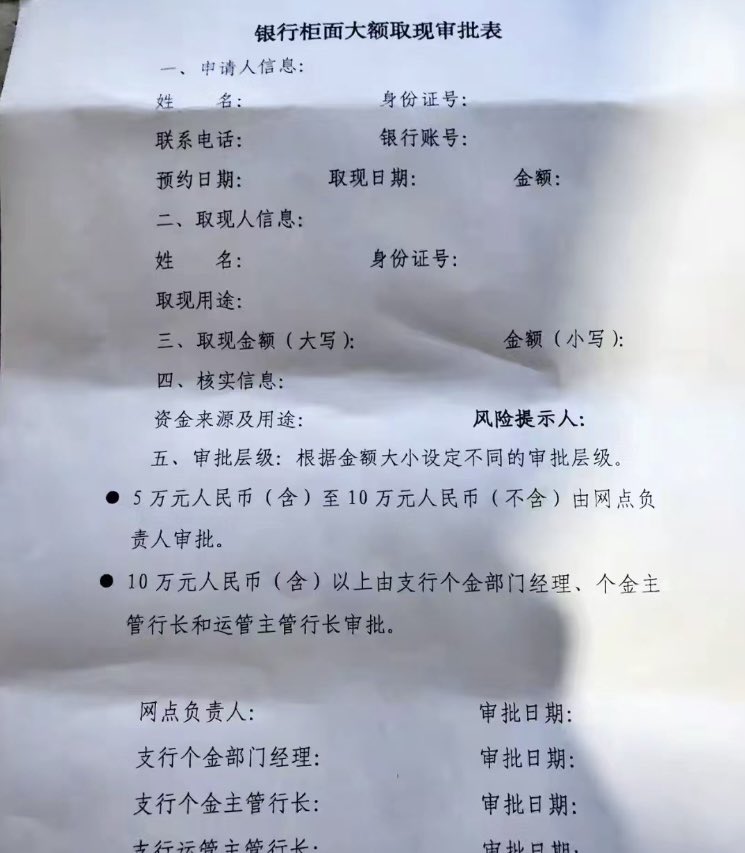 银行柜面大额取现审批表
一、申请人信息:
姓 名: 身份证号:
联系电话: 银行账号:
预约日期: 取现日期: 金额:
二、取现人信息:
姓 名: 身份证号:
取现用途:
三、取现金额(大写): 金额(小写):
四、核实信息:
资金来源及用途: 风险提示人:
五、审批层级: 根据金额大小设定不同的审批层级。
● 5万元人民币(含)至10万元人民币(不含)由网点负
责人审批。
● 10万元人民币(含)以上由支行个金部门经理、个金主
管行长和运管主管行长审批。
网点负责人: 审批日期:
支行个金部门经理: 审批日期:
支行个金主管行长: 审批日期:
支行运管主管行长: 审批日期: